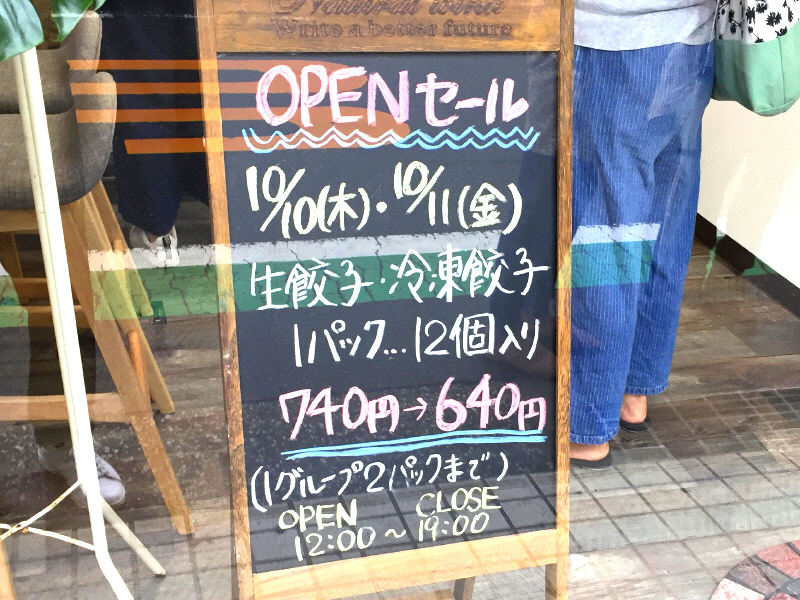 Write a better future
OPENセール
10/10(木)・10/11(金)
生餃子・冷凍餃子
1パック...12個入り
740円→640円
(1グループ2パックまで)
OPEN CLOSE
12:00～19:00